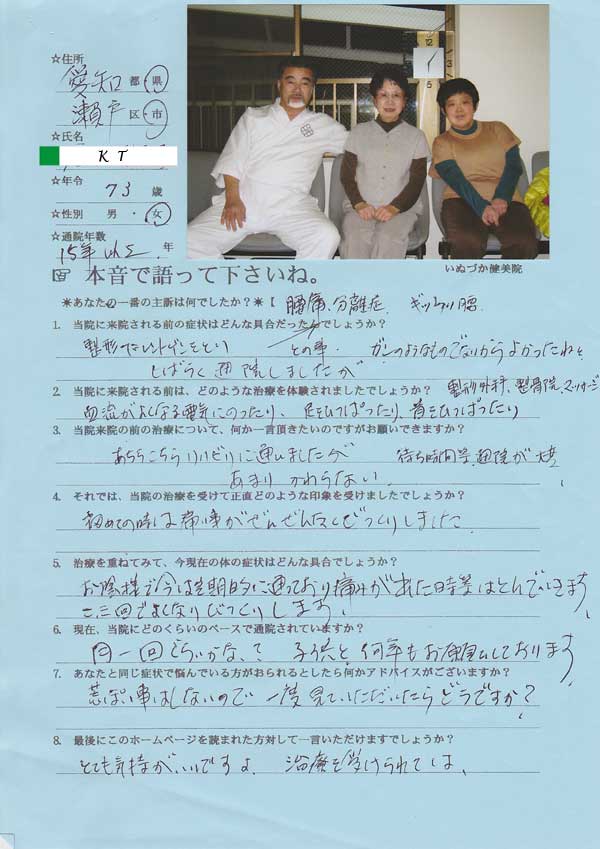 ☆住所
愛知 都・県
瀬戸 区・市
☆氏名
K T
☆年令
73 歳
☆性別 男・女
☆通院年数
15年以上. 年
本音で語って下さいね。
いぬづか健美院
＊あなたの一番の主訴は何でしたか？＊【 腰痛、分離症、ギックリ腰
1. 当院に来院される前の症状はどんな具合だったんでしょうか？
整形でレントゲンをとり との事. ガンのようなものでないからよかったねと
しばらく通院しましたが
2. 当院に来院される前は、どのような治療を体験されましたでしょうか？ 整形外科、整骨院、マッサージ
血流がよくなる電気にのったり、足をひっぱったり、首をひっぱったり
3. 当院来院の前の治療について、何か一言頂きたいのですがお願いできますか？
あちらこちら に通いましたが 待ち時間等、通院が大変
あまりかわらない.
4. それでは、当院の治療を受けて正直どのような印象を受けましたでしょうか？
初めての時は痛みがぜんぜんなくびっくりしました
5. 治療を重ねてみて、今現在の体の症状はどんな具合でしょうか？
お陰様で今は定期的に通っており痛みが出た時等はとんでいきます
二、三回でよくなりびっくりします、
6. 現在、当院にどのくらいのペースで通院されていますか？
月一回ぐらいかな、？ 子供と何年もお世話しております
7. あなたと同じ症状で悩んでいる方がおられるとしたら何かアドバイスがございますか？
荒ぽい事はしないので一度見ていただいたらどうですか？
8. 最後にこのホームページを読まれた方対して一言いただけますでしょうか？
とても気持がいいですよ、 治療を受けられては、